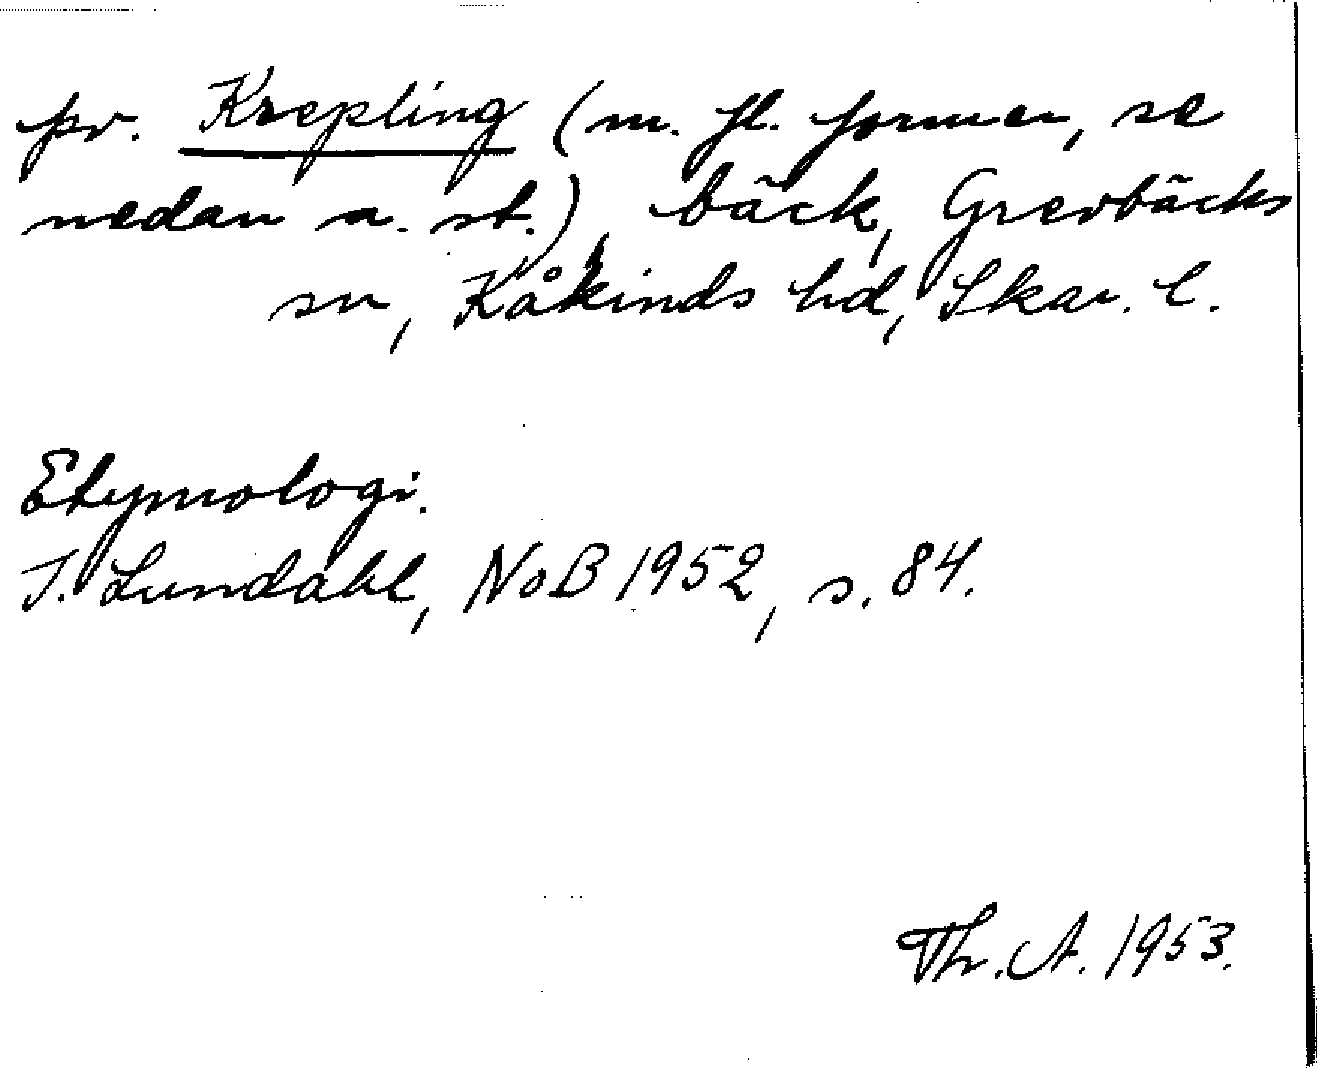 pr. Krepling (m. fl. former, se
nedan a. st.), bäck, Grevbäcks
sn, Kåkinds hd, Skar. l.
Etymologi.
I. Lundahl, NoB 1952, s. 84.
Th. A. 1953.